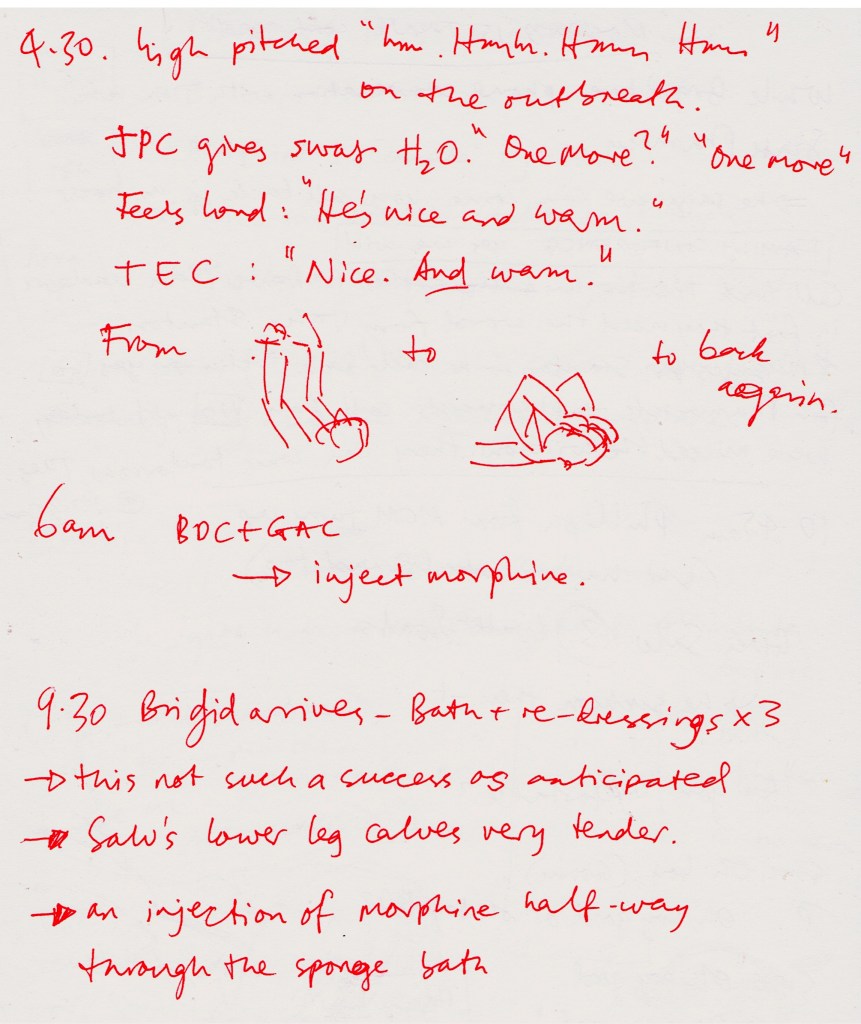 4.30. high pitched "hm. Hmhm. Hmm Hmm"
on the outbreath.
JPC gives swab H₂O. "One more?" "One more"
Feels hand: "He's nice and warm."
TEC: "Nice. And warm."
From to to back
again.
6am BDC+GAC
→ inject morphine.
9.30 Brigid arrives - Bath + re-dressings x 3
→ this not such a success as anticipated
→ Salv's lower leg calves very tender.
→ an injection of morphine half-way
through the sponge bath